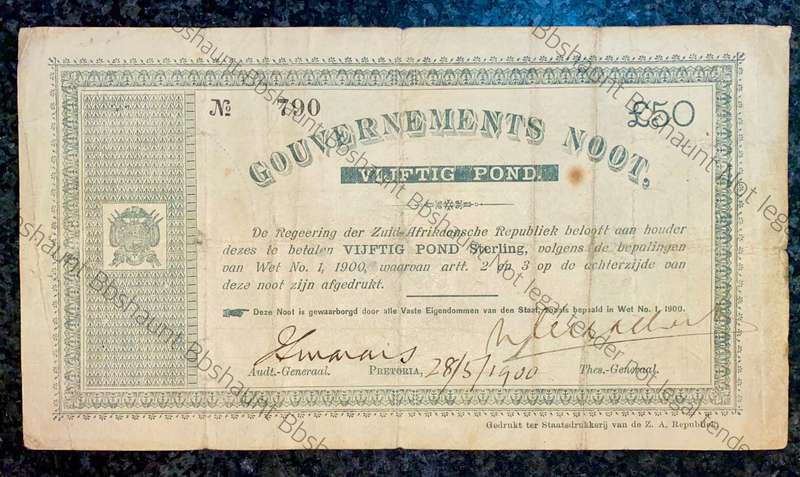 № 790 £50
GOUVERNEMENTS NOOT.
VIJFTIG POND.
De Regeering der Zuid-Afrikaansche Republiek belooft aan houder
dezes te betalen VIJFTIG POND Sterling, volgens de bepalingen
van Wet No. 1, 1900, waarvan artt. 2 en 3 op de achterzijde van
deze noot zijn afgedrukt.
Deze Noot is gewaarborgd door alle Vaste Eigendommen van den Staat, zooals bepaald in Wet No. 1, 1900.
Audt.-Generaal. PRETORIA, 28/5/1900 Thes.-Generaal.
Gedrukt ter Staatsdrukkerij van de Z. A. Republiek.
Bbshaunt Not legal tender